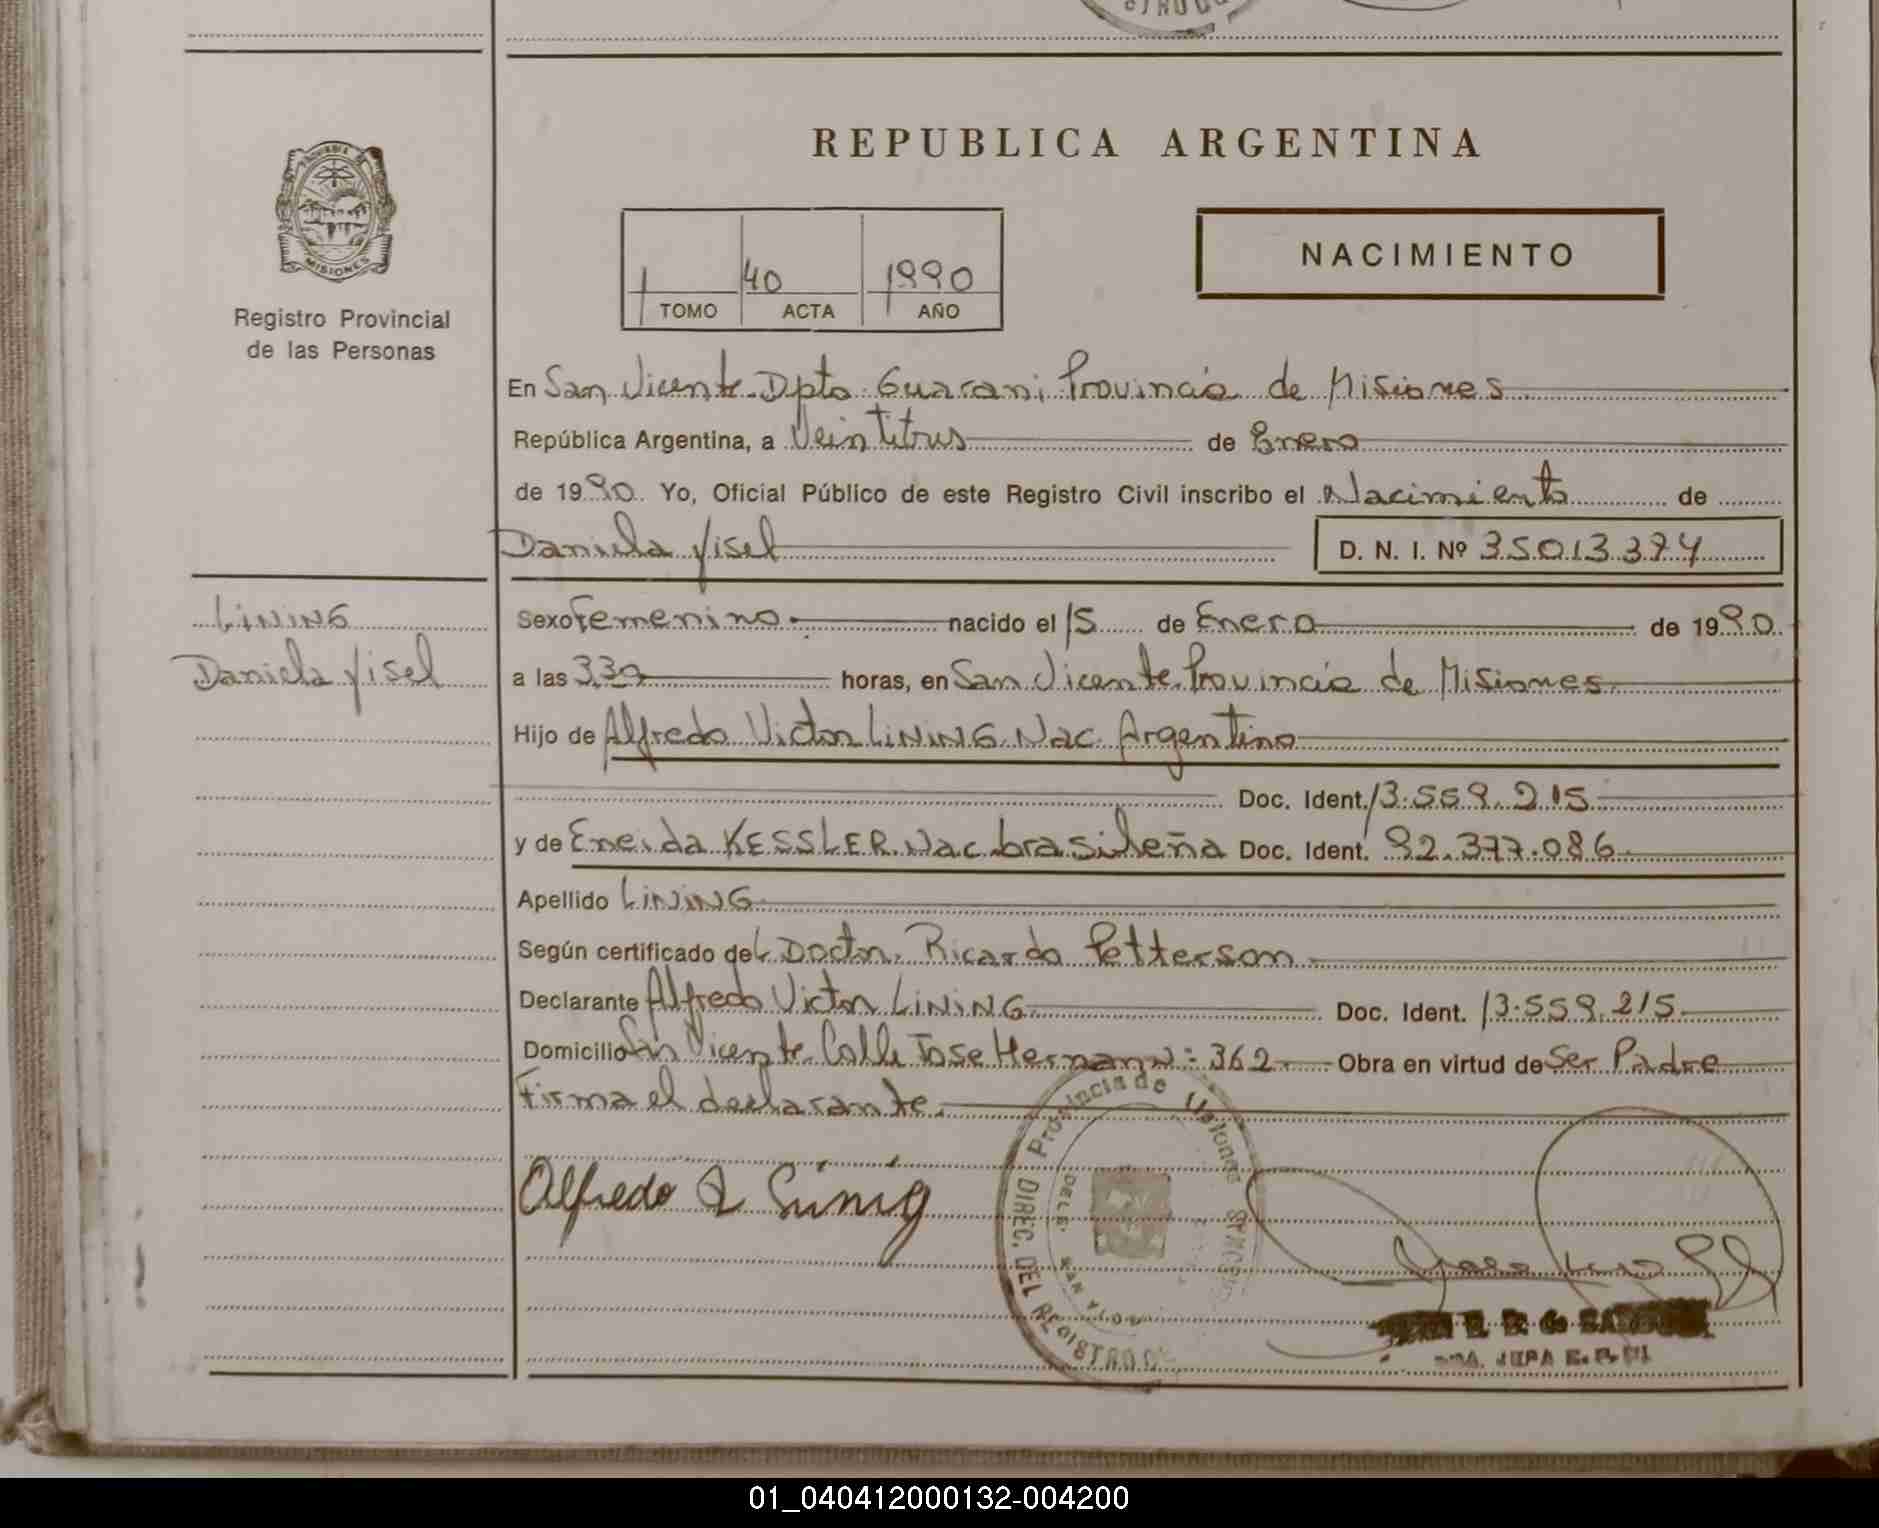 REPUBLICA ARGENTINA
PROVINCIA DE
MISIONES
Registro Provincial
de las Personas
1 40 1990
TOMO ACTA AÑO
NACIMIENTO
En San Vicente Dpto Guarani Provincia de Misiones
República Argentina, a Veintitres de Enero
de 1990 Yo, Oficial Público de este Registro Civil inscribo el Nacimiento de
Daniela Yisel D. N. I. Nº 35013374
LiNiNG
Daniela Yisel
Sexo Femenino nacido el 15 de Enero de 1990
a las 3,30 horas, en San Vicente Provincia de Misiones
Hijo de Alfredo Victor LiNiNG Nac. Argentino
Doc. Ident. 13.559.215
y de Eneida KESSLER Nac brasileña Doc. Ident. 92.377.086
Apellido LiNiNG
Según certificado del Doctor Ricardo Petterson
Declarante Alfredo Victor LiNiNG Doc. Ident. 13.559.215
Domicilio San Vicente Calle Jose Hernan N: 362 Obra en virtud de Ser Padre
Firma el declarante.
Provincia de Misiones
DIREC. DEL REGISTRO
DELE. SAN
Alfredo
01_040412000132-004200